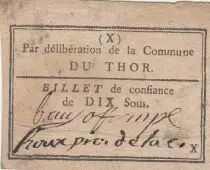 (X)
Par délibération de la Commune
DU THOR.
BILLET de confiance
de DIX Sous.
X